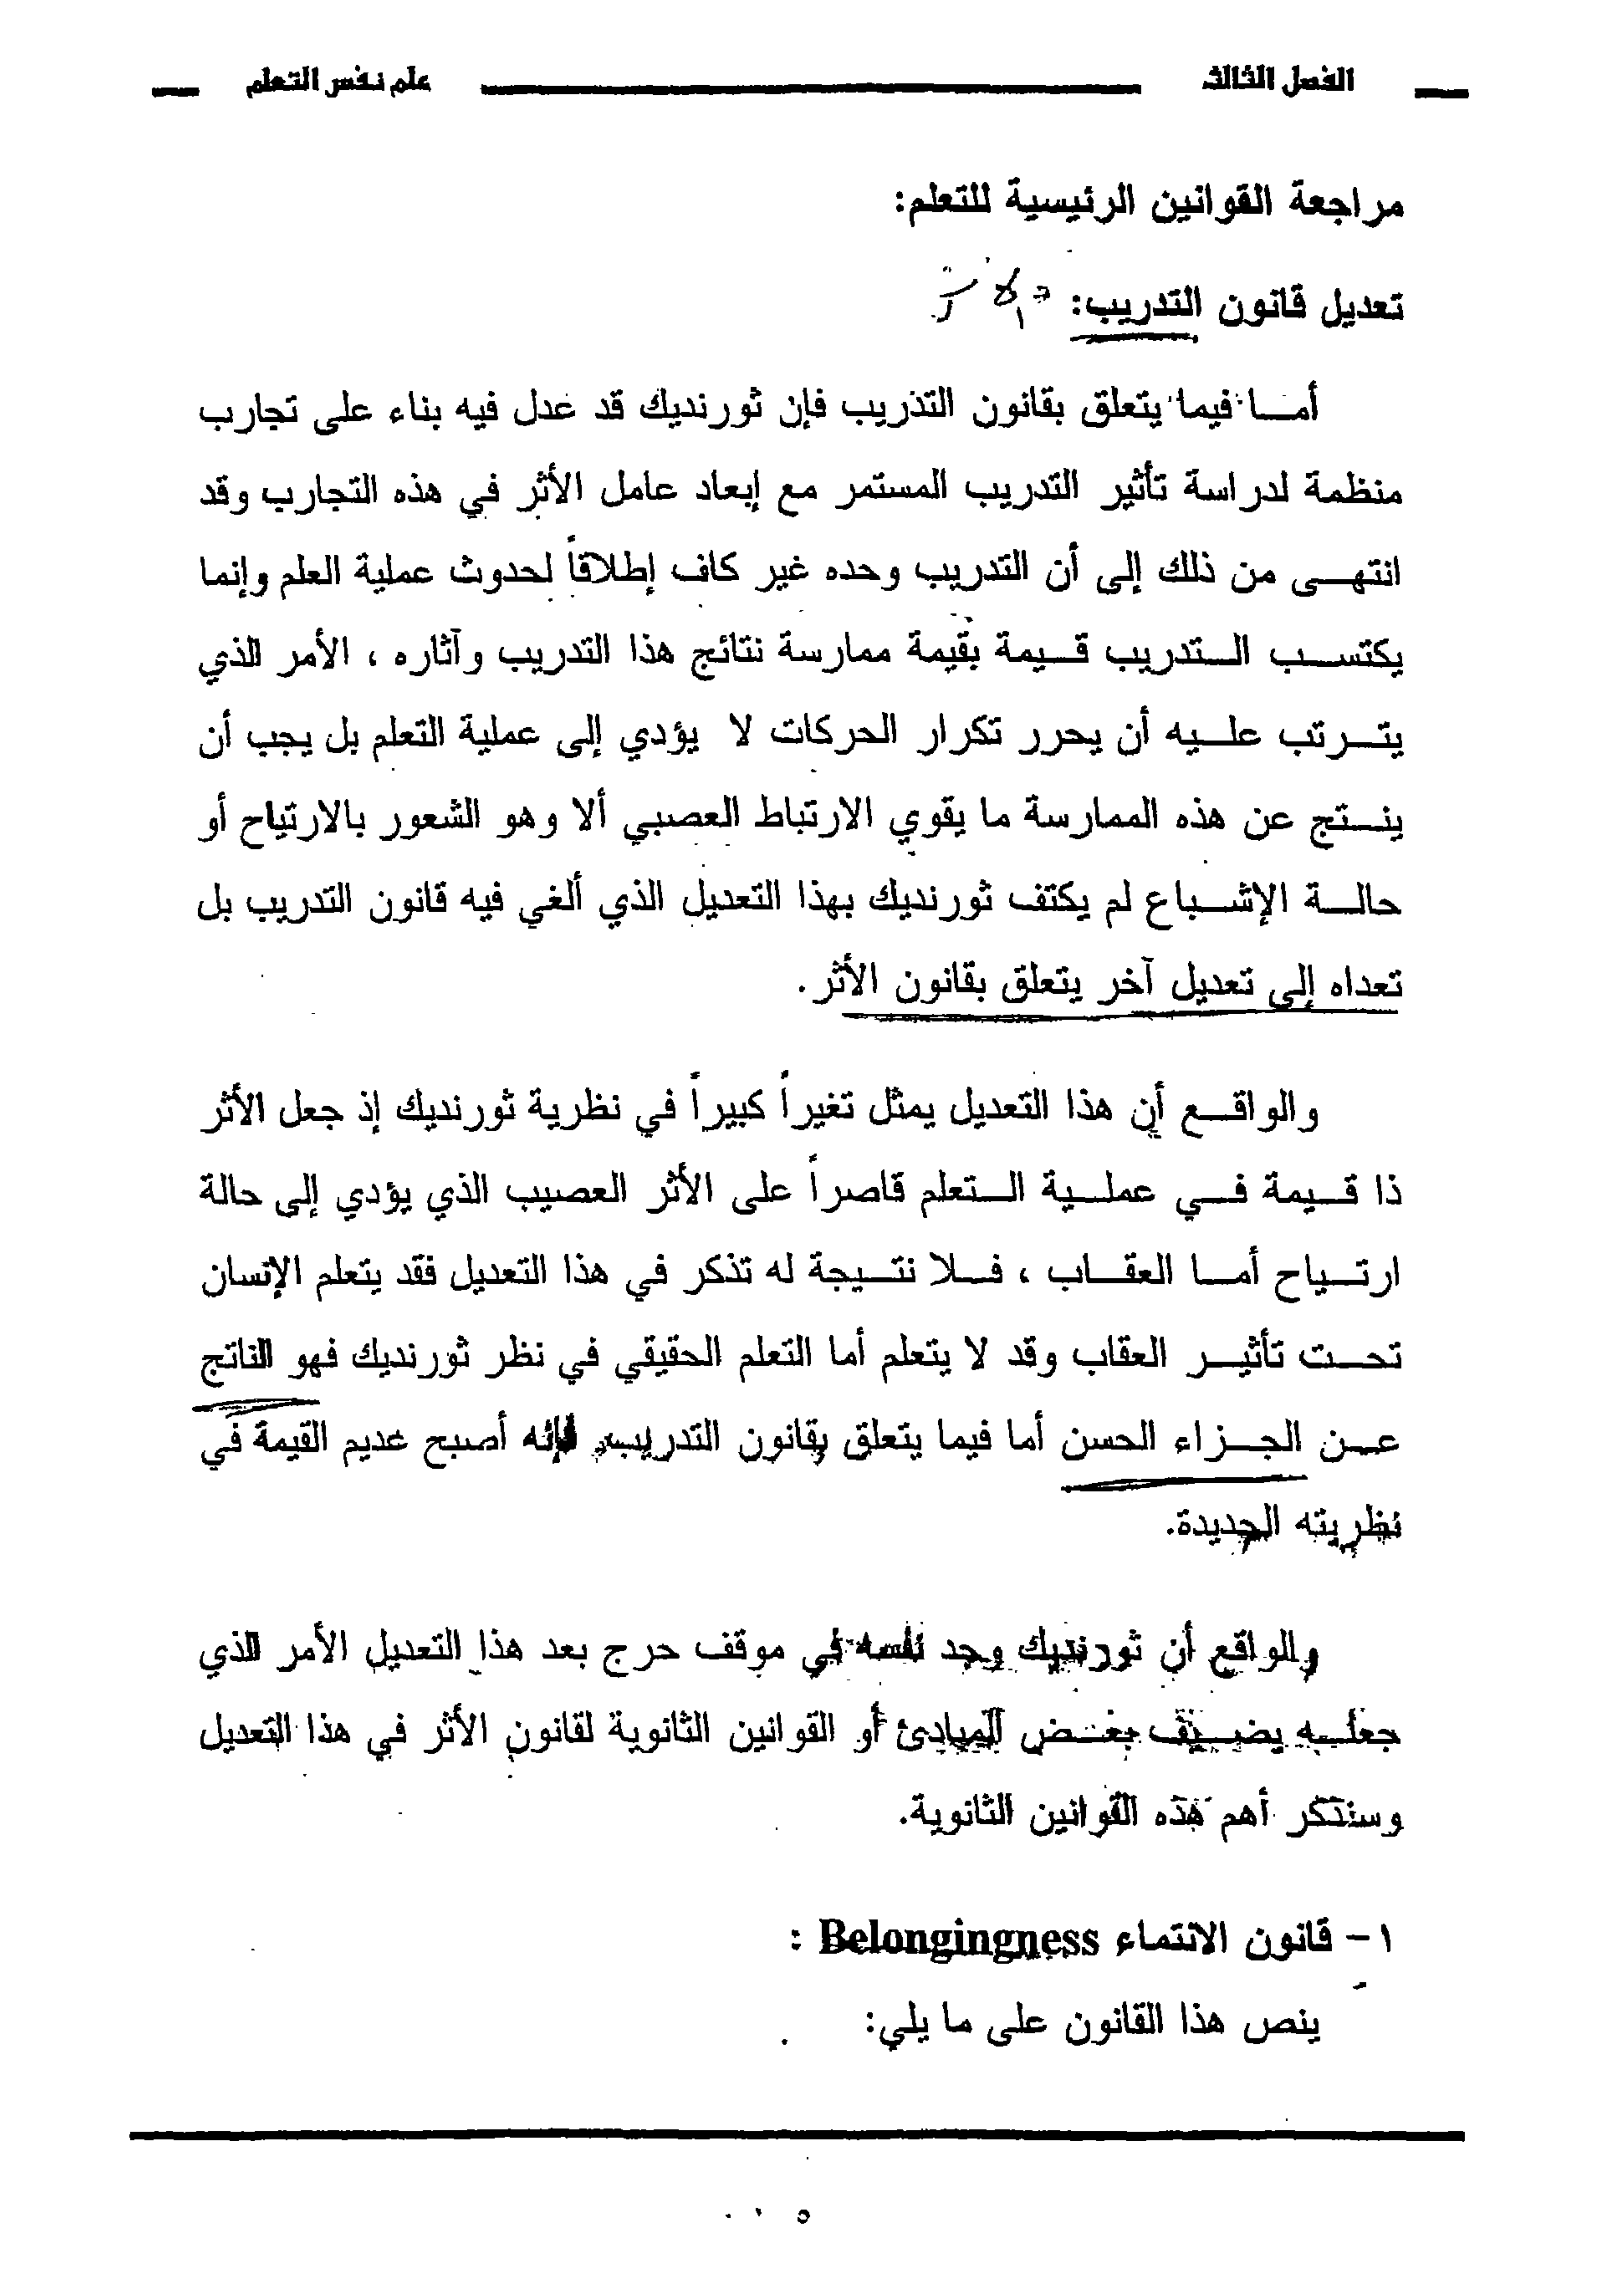 الفصل الثالث علم نفس التعلم
مراجعة القوانين الرئيسية للتعلم:
تعديل قانون التدريب:
أما فيما يتعلق بقانون التدريب فإن ثورنديك قد عدل فيه بناء على تجارب
منظمة لدراسة تأثير التدريب المستمر مع إبعاد عامل الأثر في هذه التجارب وقد
انتهى من ذلك إلى أن التدريب وحده غير كاف إطلاقاً لحدوث عملية العلم وإنما
يكتسب التدريب قيمة بقيمة ممارسة نتائج هذا التدريب وآثاره ، الأمر الذي
يترتب عليه أن يحرر تكرار الحركات لا يؤدي إلى عملية التعلم بل يجب أن
ينتج عن هذه الممارسة ما يقوي الارتباط العصبي ألا وهو الشعور بالارتياح أو
حالة الإشباع لم يكتف ثورنديك بهذا التعديل الذي ألغي فيه قانون التدريب بل
تعداه إلى تعديل آخر يتعلق بقانون الأثر.
والواقع أن هذا التعديل يمثل تغيراً كبيراً في نظرية ثورنديك إذ جعل الأثر
ذا قيمة في عملية التعلم قاصراً على الأثر العصيب الذي يؤدي إلى حالة
ارتياح أما العقاب ، فلا نتيجة له تذكر في هذا التعديل فقد يتعلم الإنسان
تحت تأثير العقاب وقد لا يتعلم أما التعلم الحقيقي في نظر ثورنديك فهو الناتج
عن الجزاء الحسن أما فيما يتعلق بقانون التدريب، فإنه أصبح عديم القيمة في
نظريته الجديدة.
والواقع أن ثورنديك وجد نفسه في موقف حرج بعد هذا التعديل الأمر الذي
جعله يضيف بعض المبادئ أو القوانين الثانوية لقانون الأثر في هذا التعديل
وسنذكر أهم هذه القوانين الثانوية.
١- قانون الانتماء Belongingness :
ينص هذا القانون على ما يلي: